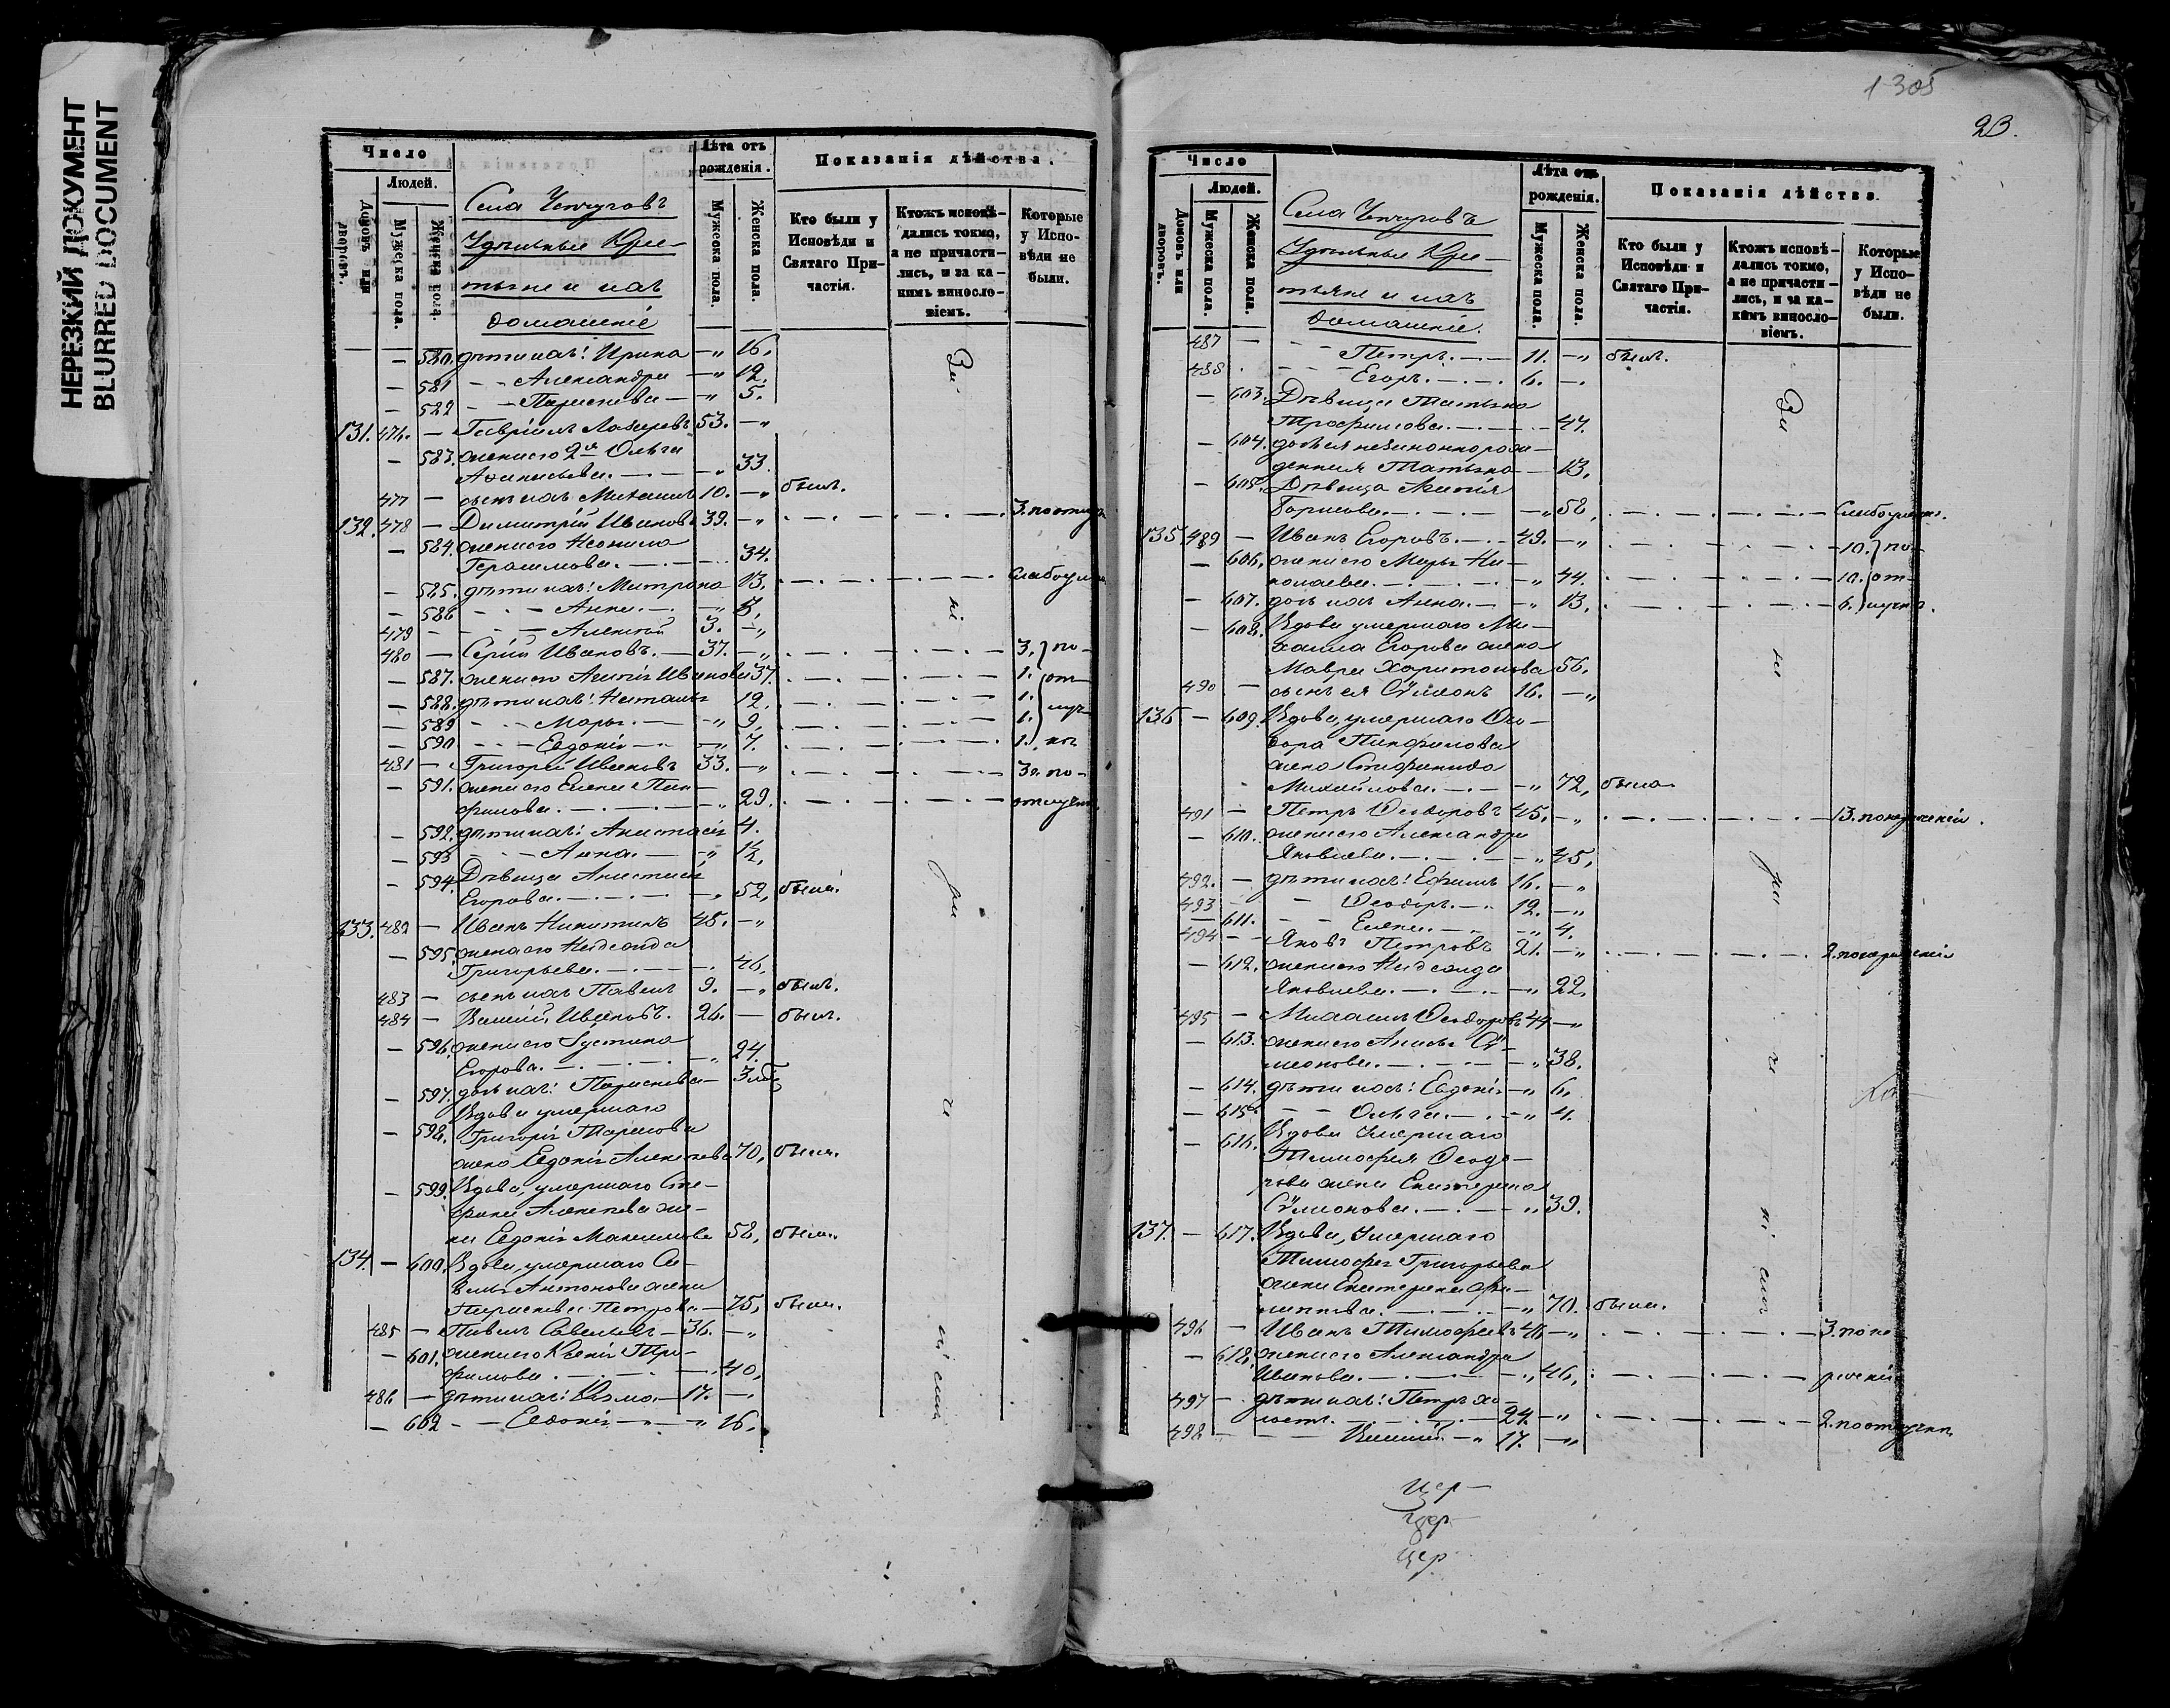 НЕРЕЗКИЙ ДОКУМЕНТ
BLURRED DOCUMENT
Число
Людей.
Домовъ или дворовъ.
Мужеска пола.
Женска пола.
Села
Удѣльные Кре-
стьяне и ихъ
домашніе
Лѣта отъ рожденія.
Мужеска пола.
Женска пола.
Показанія дѣйства.
Кто были у Исповѣди и Святаго При-частія.
Ктожъ исповѣ-дались токмо, а не причасти-лись, и за ка-кимъ винословіемъ.
Которые у Испо-вѣди не были.
— 580. дѣти ихъ: Ирина —„ 16.
— 581 — Александра —„ 12.
— 582 — Параскева —„ 5.
131. 476. — Гавріилъ Лазаревъ 53. —„
— 583. жена его 2я Ольга
Аѳанасьева. — 33.
477 — сынъ ихъ Михаилъ 10. —„ былъ.
132. 478 — Димитрій Ивановъ 39. —„ 3. по отлуч
— 584. жена его Неонила
Герасимова. — 34.
— 585. дѣти ихъ: Матрона 13. слабоум
— 586 — Анна. —„
479 — Алексѣй 3. —„
480 — Сергій Ивановъ. — 37. —„ 3. по-
— 587. жена его Иванова 37. 1. от-
— 588. дѣти ихъ: Наталья 12. 1. луч-
— 589 — Марья. —„ 9. 1.
— 590 — Евдокія —„ 7. 1.
481 — Григорій Ивановъ 33. —„ по-
— 591. жена его Елена Пан-
филова. —„ 29. отлучк.
— 592. дѣти ихъ: Анастасія 4.
— 593 — Анна. —„ 1½.
— 594. Дѣвица Анастасія
Егорова. —„ 52. была.
133. 482 — Иванъ Никитинъ 45. —„
— 595. жена его
Григорьева. — 46.
483 — сынъ ихъ Павелъ 9. —„ былъ.
484 — Василій Ивановъ. 26. — былъ.
— 596. жена его Іустина
Егорова. —„ 24.
— 597. дочь ихъ: Параскева —
Вдова умершаго
— 598. Григорія
жена Евдокія Алексѣева 70. была.
— 599. Вдова, умершаго Сте-
фана Алексѣева же-
на Евдокія Максимова 58. была.
134. — 600. Вдова, умершаго Са-
велья Антонова жена
Параскева Петрова — 75. была.
485 — Павелъ Савельевъ — 36. —„
— 601. жена его Ксенія Тро-
фимова — 40.
486 — дѣти ихъ: Козма — 17. —
— 602 — Евдокія —„ 16.
1305
23.
Число
Людей.
Домовъ или дворовъ.
Мужеска пола.
Женска пола.
Села
Удѣльные Кре-
стьяне и ихъ
домашніе.
Лѣта отъ рожденія.
Мужеска пола.
Женска пола.
Показанія дѣйства.
Кто были у Исповѣди и Святаго При-частія.
Ктожъ исповѣ-дались токмо, а не причасти-лись, и за ка-кимъ винословіемъ.
Которые у Испо-вѣди не были.
487 — Петръ. — 11. —„ былъ.
488. — Егоръ. — 6. —
— 603. Дѣвица Татьяна
Трофимова. — 47.
— 604. дочь ея незаконнорож-
денная Татьяна — 13.
— 605. Дѣвица
Борисова. —„ 58. слабоумна.
135. 489 — Иванъ Егоровъ. — 49. —„ 10. по-
— 606. жена его Марья Ни-
колаева. —„ 44. 10. от-
— 607. дочь ихъ Анна. —„ 13. 6. лучк.
— 608. Вдова умершаго Ми-
хаила Егорова жена
Мавра Харитонова 56.
490 — сынъ ея Сѵмеонъ 16. —„
136 — 609. Вдова, умершаго Ѳео-
дора Панфилова
жена Стефанида
Михайлова. —„ 72. была.
491 — Петръ Ѳеодоровъ 45. —„ 13. по нераченію.
— 610. жена его Александра
Яковлева. —„ 45.
492. — дѣти ихъ: Ефимъ 16. —„
493 — Ѳеодоръ. — 12. —„
— 611. — Елена. —„ 4.
494 — Яковъ Петровъ 21. —„ 2. по нераченію
— 612. жена его
Яковлева. —„ 22.
495 — Михаилъ Ѳеодоровъ 44 —„
— 613. жена его Анисья Сѵ-
меонова. —„ 38.
— 614. дѣти ихъ: Евдокія —„ 6.
— 615. — Ольга. —„ 4.
Вдова Умершаго
— 616. Тимофея Ѳеодо-
рова жена Екатерина
Сѵмеонова. —„ 39.
137. — 617. Вдова, Умершаго
Тимофея Григорьева
жена Екатерина Фи-
липпова. —„ 70. была.
496 — Иванъ Тимофеевъ 46 —„ 3. по не-
— 618. жена его Александра
Иванова. —„ 46. раченію
497 — дѣти ихъ: Петръ хо-
лостъ. — 24. —„ 2. по отлучкѣ
498 — Василій —„ 17. —„
Цер-
Цер-
Цер